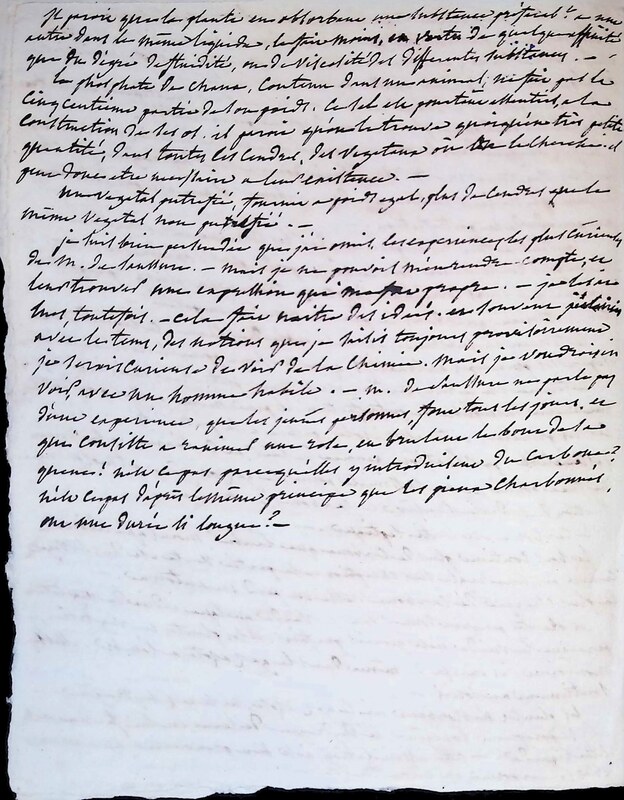 Il paroit que la plante en absorbant une substance préférabt. a une
autre dans le même liquide, le fait moins, en vertu de quelque affinité
que du dégré de fluidité, ou de viscosité des differentes substances. —
la phosphate de chaux, contenu dans un animal, ne fait pas la
cinq centième partie de son poids. Ce sel est pourtant essentiel, a la
construction de ses os. il paroit qu'on le trouve quoiqu'en très petite
quantité, dans toutes les cendres, des vegetaux ou on le cherche. il
peut donc etre necessaire a leur existence. —
un vegetal putrifié, fournit a poids egal, plus de cendres que le
même vegetal non putrifié. —
je suis bien persuadée que j'ai omis, les experiences les plus curieuses
de M. de Saussure. — mais je ne pouvois m'en rendre compte, et
leur trouver une expression qui me fut propre. — je les ai
lues toutefois. — cela fait naitre des idées. et souvent j'éclaircis
avec le tems, des notions que je saisis toujours provisoirement
je serois curieuse de voir de la Chimie. Mais je voudrois en
voir avec un homme habile. — M. de Saussure ne parle pas
d'une experience que les jeunes personnes, font tous les jours, et
qui consiste a ranimer une rose, en brulant le bout de la
queue! n'est ce pas parcequ'elles y introduisent du carbone?
n'est ce pas d'après le même principe que les pieux charbonnés,
ont une durée si longue? —